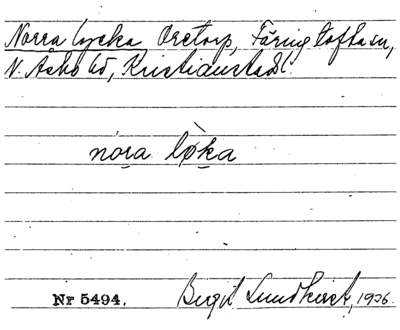 Norra lycka Oretorp, Färingtofta sn,
N. Åsbo hd, Kristianstads l.
nora lø̀ka
Nr 5494. Birgit Lundkvist, 1936.